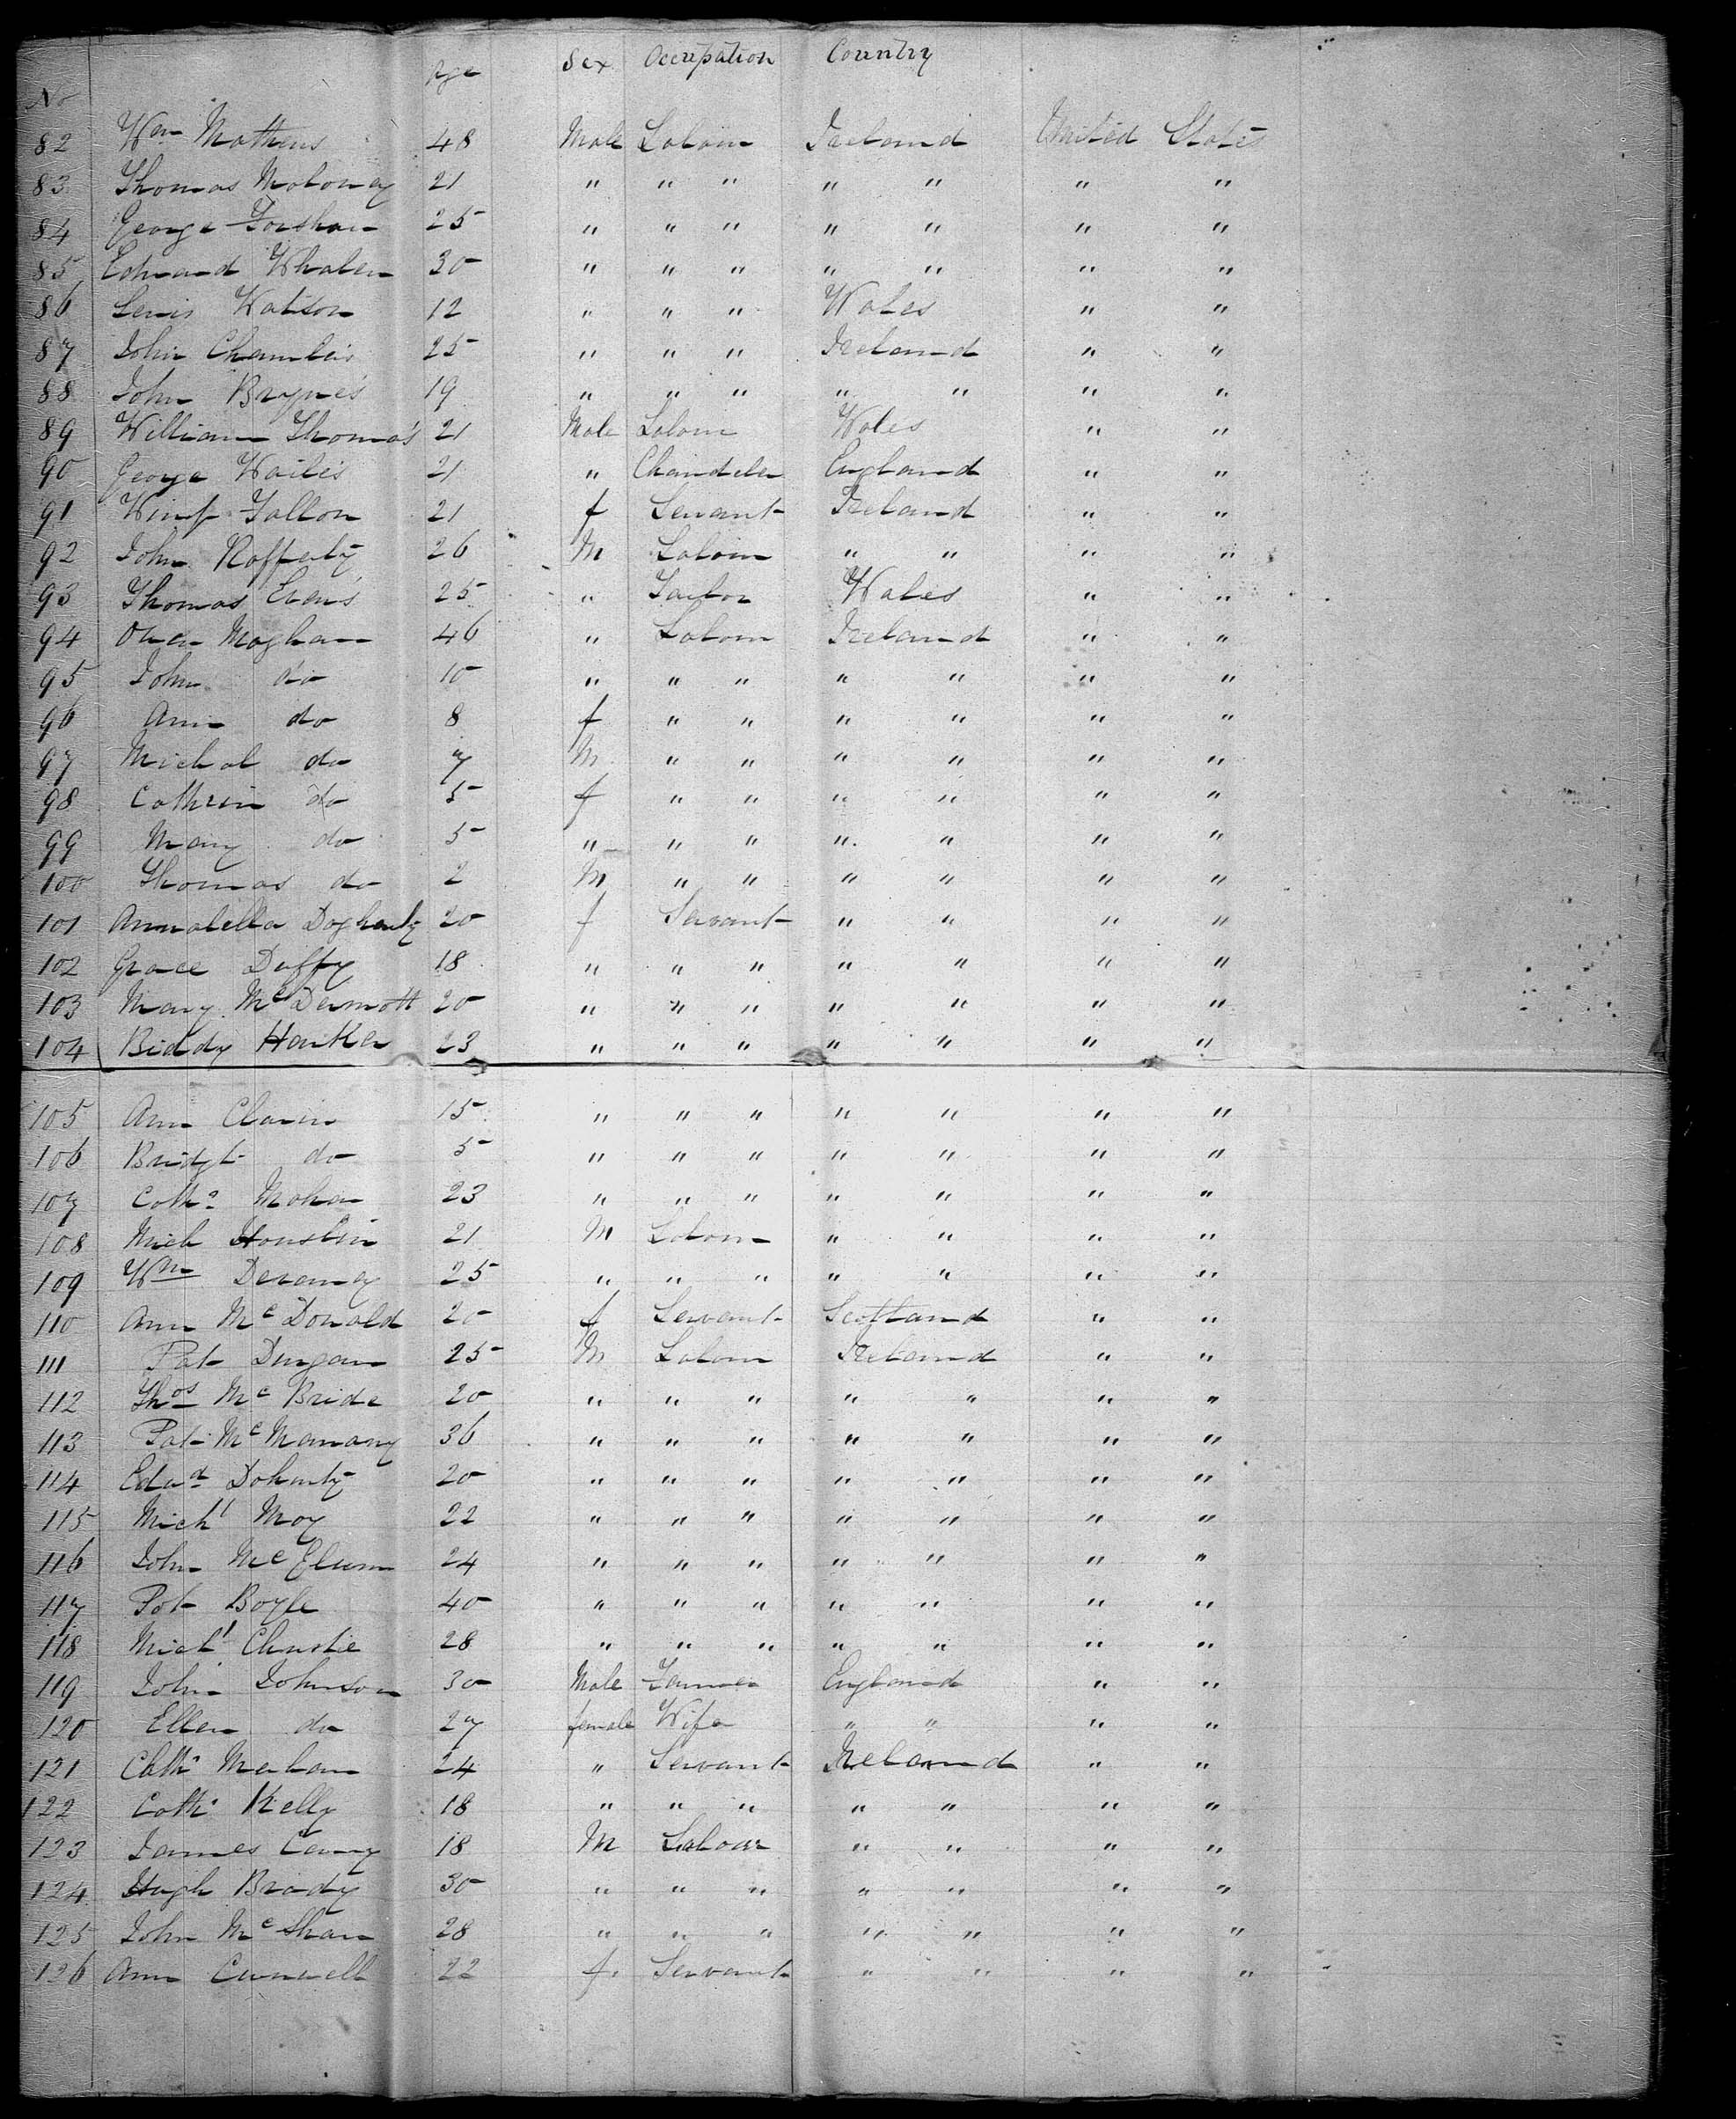 No Age Sex Occupation Country
82 Wm Mathews 48 Male Labour Ireland United States
83 Thomas Moloney 21 " " " " " " "
84 George 25 " " " " " " "
85 Edward Whalen 30 " " " " " " "
86 Lewis Watison 12 " " " Wales " "
87 John Chambers 25 " " " Ireland " "
88 John Brynes 19 " " " " " " "
89 William Thomas 21 Male Labour Wales " "
90 George Wailes 21 " Chandeler England " "
91 Winf Fallon 21 f Servant Ireland " "
92 John Rafferty 26 M Labour " " " "
93 Thomas Evans 25 " Tailor Wales " "
94 Owen Moghan 46 " Labour Ireland " "
95 John do 10 " " " " " " "
96 Ann do 8 f " " " " " "
97 Michal do 7 M " " " " " "
98 Cathrin do 5 f " " " " " "
99 Mary do 5 " " " " " " "
100 Thomas do 2 M " " " " " "
101 Annabella Dogherty 20 f Servant " " " "
102 Grace Duffy 18 " " " " " " "
103 Mary McDermott 20 " " " " " " "
104 Biddy Harken 23 " " " " " " "
105 Ann Clavin 15 " " " " " " "
106 Bridgt do 5 " " " " " " "
107 Cath. Mohan 23 " " " " " " "
108 Mich 21 M Labour " " " "
109 Wm Devaney 25 " " " " " " "
110 Ann McDonald 20 f Servant Scotland " "
111 Pat Dungan 25 M Labour Ireland " "
112 Thos McBride 20 " " " " " " "
113 Pat McManany 36 " " " " " " "
114 Edwd Doherty 20 " " " " " " "
115 Michl Moy 22 " " " " " " "
116 John 24 " " " " " " "
117 Pat Boyle 40 " " " " " " "
118 Michl Christie 28 " " " " " " "
119 John Johnson 30 Male Farmer England " "
120 Ellen do 27 female Wife " " " "
121 Cath. Mechan 24 " Servant Ireland " "
122 Cath. Kelly 18 " " " " " " "
123 James 18 M Labour " " " "
124 Hugh Brady 30 " " " " " " "
125 John McShane 28 " " " " " " "
126 Ann 22 f. Servant " " " "